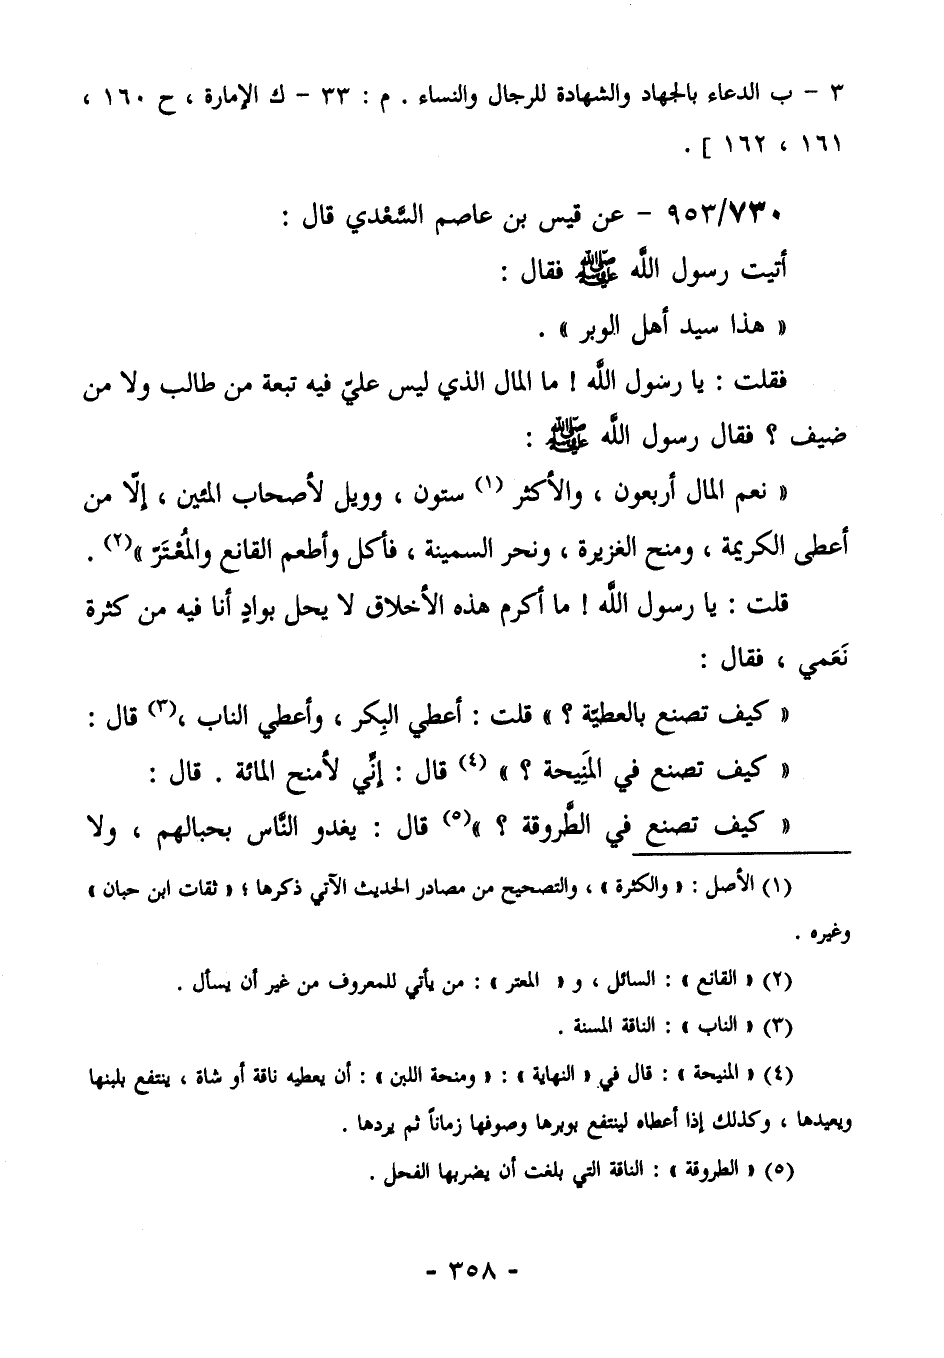 ٣ - ب الدعاء بالجهاد والشهادة للرجال والنساء . م : ٣٣ - ك الإمارة ، ح ١٦٠ ،
١٦١ ، ١٦٢ ] .
٩٥٣/٧٣٠ - عن قيس بن عاصم السَّعْدي قال :
أتيت رسول اللَّه ﷺ فقال :
« هذا سيد أهل الوبر » .
فقلت : يا رسول اللَّه ! ما المال الذي ليس عليّ فيه تبعة من طالب ولا من
ضيف ؟ فقال رسول اللَّه ﷺ :
« نعم المال أربعون ، والأكثر (١) ستون ، وويل لأصحاب المئين ، إلّا من
أعطى الكريمة ، ومنح الغزيرة ، ونحر السمينة ، فأكل وأطعم القانع والمُعْتَرّ »(٢) .
قلت : يا رسول اللَّه ! ما أكرم هذه الأخلاق لا يحل بوادٍ أنا فيه من كثرة
نَعَمي ، فقال :
« كيف تصنع بالعطيّة ؟ » قلت : أعطي البِكر ، وأعطي الناب ،(٣) قال :
« كيف تصنع في المَنِيحة ؟ » (٤) قال : إنَّي لأمنح المائة . قال :
« كيف تصنع في الطَّروقة ؟ »(٥) قال : يغدو النَّاس بحبالهم ، ولا
(١) الأصل : « والكثرة » ، والتصحيح من مصادر الحديث الآتي ذكرها ؛ « ثقات ابن حبان »
وغيره .
(٢) « القانع » : السائل ، و « المعتر » : من يأتي للمعروف من غير أن يسأل .
(٣) « الناب » : الناقة المسنة .
(٤) « المنيحة » : قال في « النهاية » : « ومنحة اللبن » : أن يعطيه ناقة أو شاة ، ينتفع بلبنها
ويعيدها ، وكذلك إذا أعطاه لينتفع بوبرها وصوفها زماناً ثم يردها .
(٥) « الطروقة » : الناقة التي بلغت أن يضربها الفحل .
- ٣٥٨ -